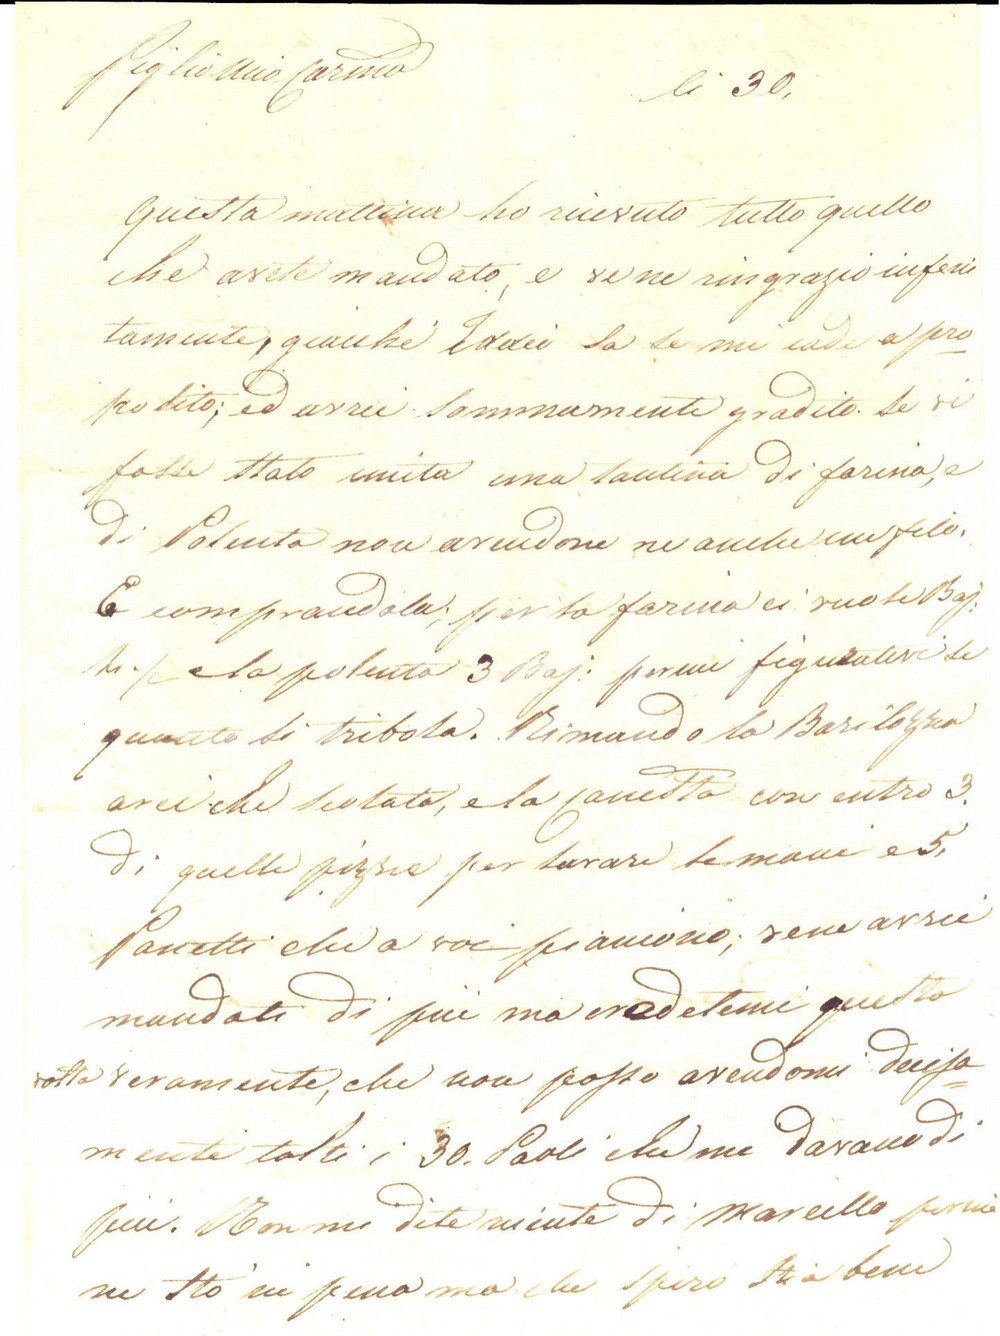 Figlio Mio Carmo
li 30.
Questa mattina ho ricevuto tutto quello
che avete mandato, e ve ne ringrazio infeni
tamente, giacché Iddio sa se mi cade a pro
posito; ed avrei sommamente gradito se vi
fosse stato unita una tantina di farina, e
di Polenta non avendone ne anche un filo.
E comprandola; per la farina ci vuole Baj:
e la polenta 3 Baj: figuratevi se
quanto si tribola. Rimando la Barilozza
che scolata, e la canestra con entro 3.
di quelle pizze per lavare le mani e 5.
Panetti che a voi piaciono; vene avrei
mandati di più ma credetemi questa
volta veramente, che non posso avendomi decisa
mente tolti i 30. Paoli che me davano di
più. Non me dite niente di Marcello
ne stò in pena ma che spero stia bene